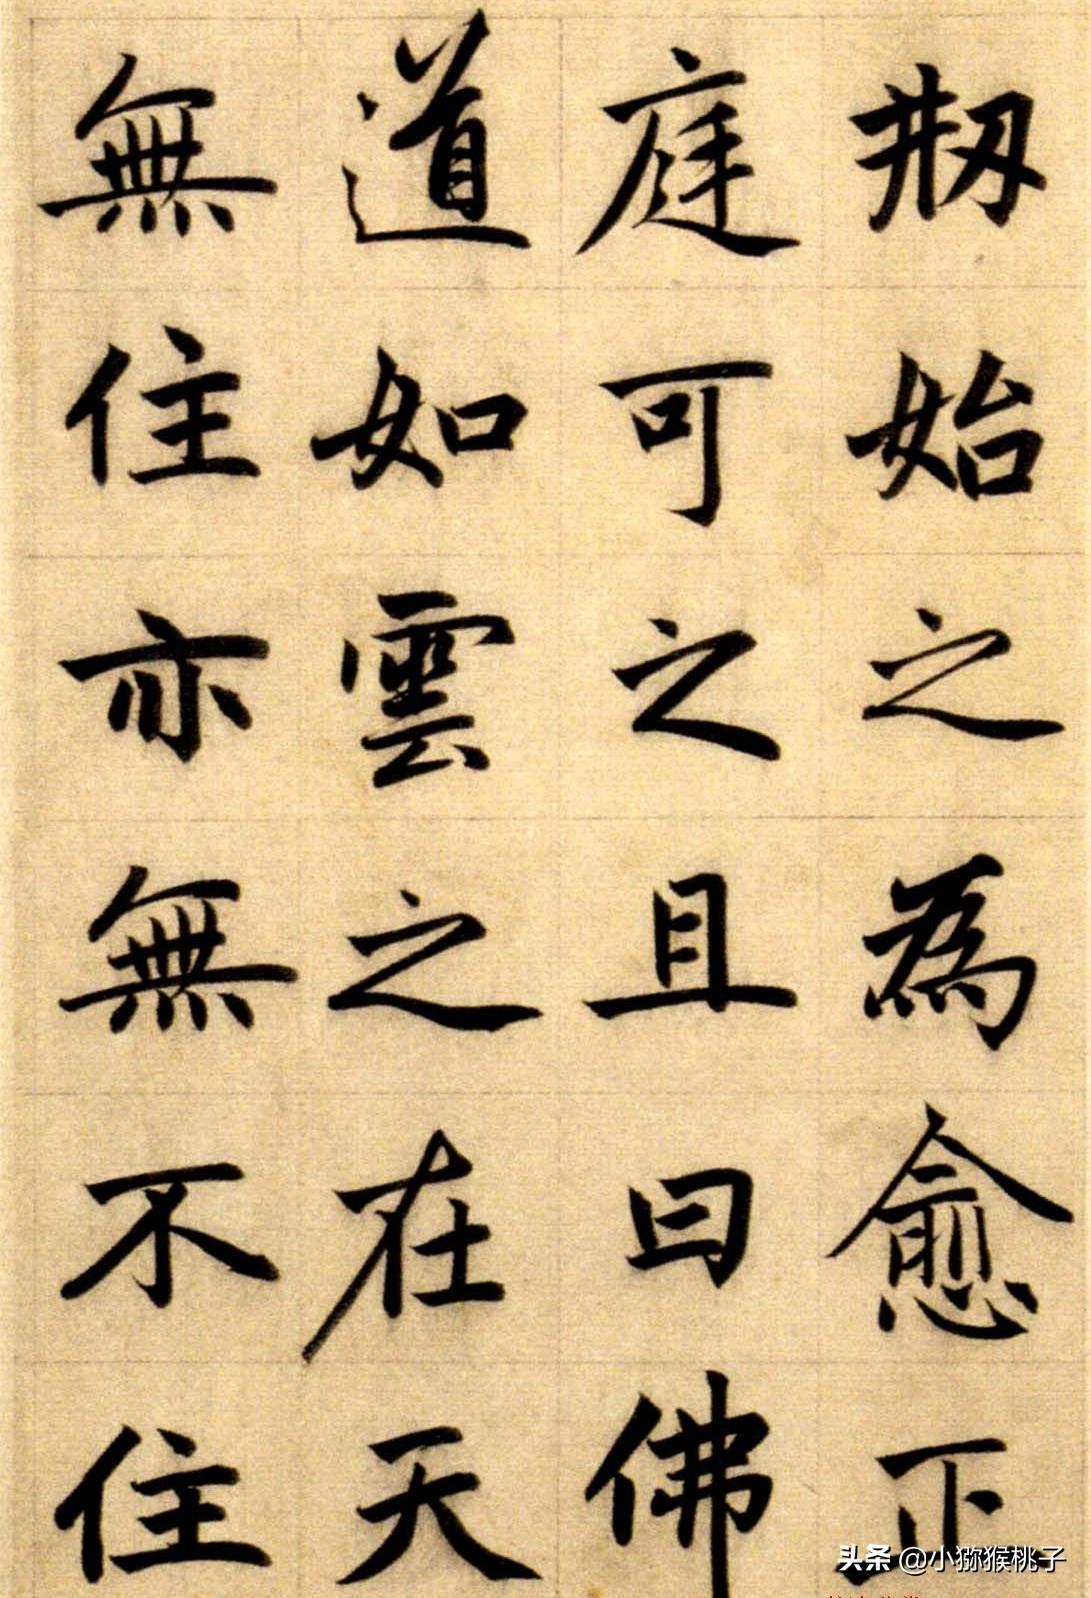 刱始之為愈正
庭可之且曰佛
道如雲之在天
無住亦無不住
头条 @小猕猴桃子